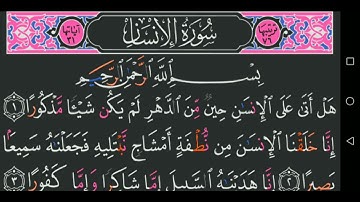 ترتيبها ٧٦ سُورَةُ الإِنسَانِ آياتها ٣١
بِسْمِ اللَّهِ الرَّحْمَٰنِ الرَّحِيمِ
هَلْ أَتَىٰ عَلَى الْإِنسَٰنِ حِينٌ مِّنَ الدَّهْرِ لَمْ يَكُن شَيْـًٔا مَّذْكُورًا ١
إِنَّا خَلَقْنَا الْإِنسَٰنَ مِن نُّطْفَةٍ أَمْشَاجٍ نَّبْتَلِيهِ فَجَعَلْنَٰهُ سَمِيعًۢا
بَصِيرًا ٢ إِنَّا هَدَيْنَٰهُ السَّبِيلَ إِمَّا شَاكِرًا وَإِمَّا كَفُورًا ٣